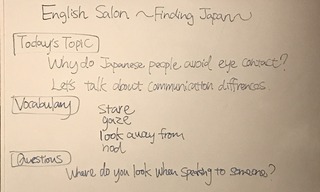 English Salon ～Finding Japan～
Today's Topic
Why do Japanese people avoid eye contact?
Let's talk about communication differences.
Vocabulary
stare
gaze
look away from
nod
Questions
Where do you look when speaking to someone?